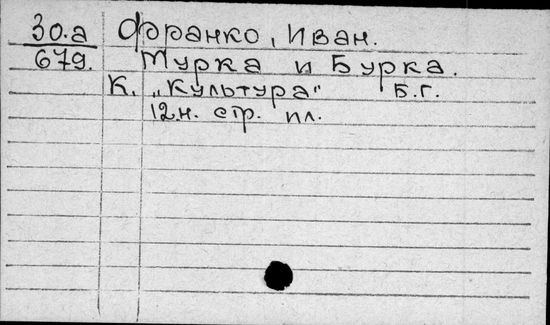 30.а Франко, Иван.
679. Мурка и Бурка.
К. „Культура" Б.Г.
12.н. стр. ил.